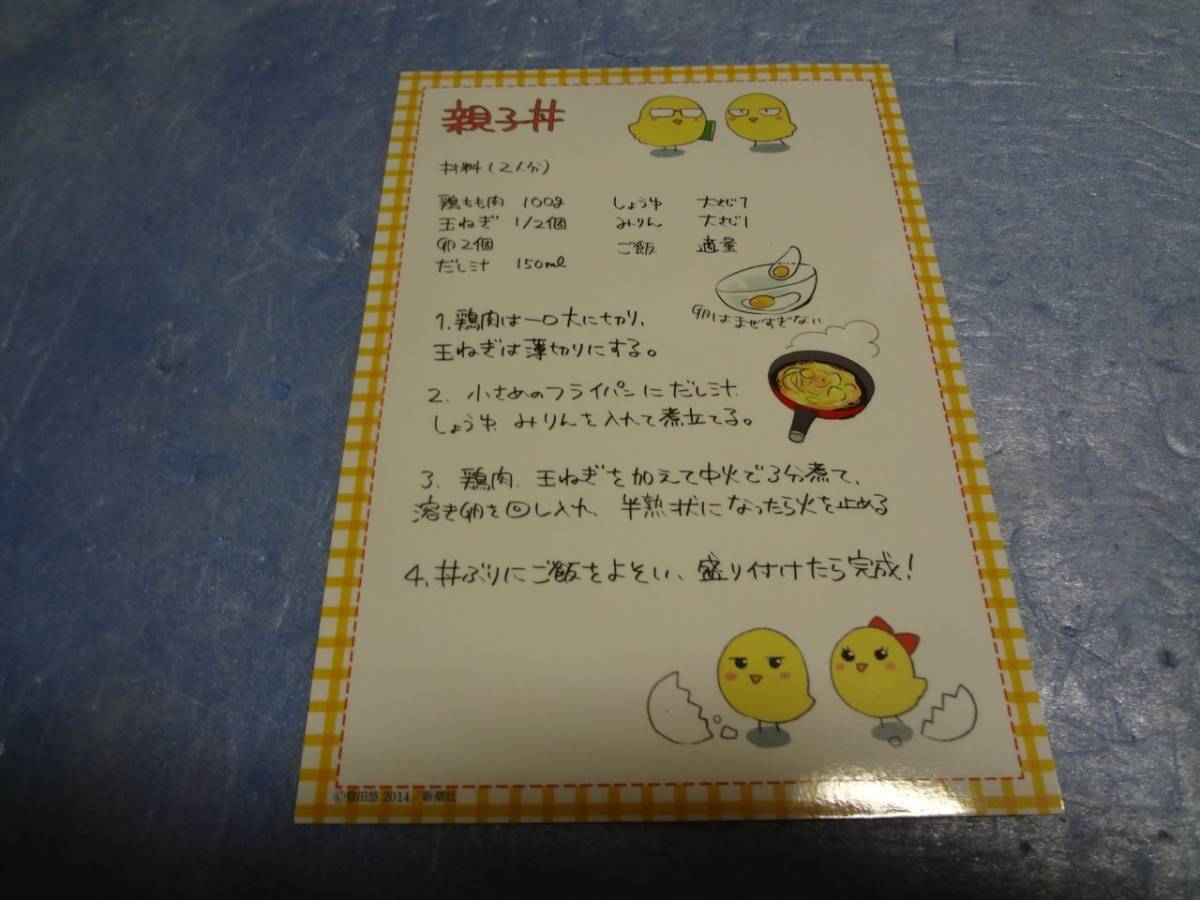 親子丼
材料(2人分)
鶏もも肉 100g しょうゆ 大さじ1
玉ねぎ 1/2個 みりん 大さじ1
卵2個 ご飯 適量
だし汁 150ml
卵はまぜすぎない
1. 鶏肉は一口大に切り、
玉ねぎは薄切りにする。
2. 小さめのフライパンにだし汁、
しょうゆ、みりんを入れて煮立てる。
3. 鶏肉、玉ねぎを加えて中火で3分煮て、
溶き卵を回し入れ、半熟状になったら火を止める
4. 丼ぶりにご飯をよそい、盛り付けたら完成!
©豊田悠 2014/新潮社